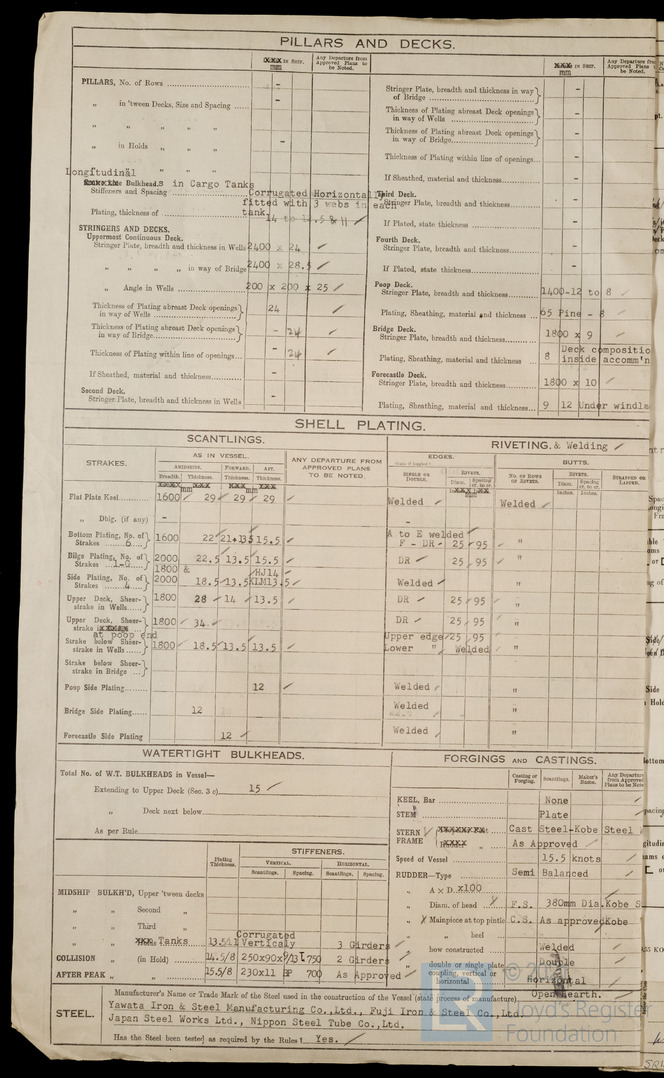 PILLARS AND DECKS.
IN SHIP.
mm
Any Departure from Approved Plans to be Noted.
PILLARS, No. of Rows -
„ in 'tween Decks, Size and Spacing -
„ „ „ „
„ in Holds „ „ -
„ „ „
Longitudinal
Bulkheads in Cargo Tanks
Stiffeners and Spacing Corrugated Horizontal
fitted with 3 webs in each
tank
Plating, thickness of
STRINGERS AND DECKS.
Uppermost Continuous Deck.
Stringer Plate, breadth and thickness in Wells 2400 x 24
„ „ „ „ in way of Bridge 2400 x 28.5
„ Angle in Wells 200 x 200 x 25
Thickness of Plating abreast Deck openings in way of Wells 24
Thickness of Plating abreast Deck openings in way of Bridge - 24
Thickness of Plating within line of openings - 24
If Sheathed, material and thickness -
Second Deck.
Stringer Plate, breadth and thickness in Wells -
IN SHIP.
mm
Any Departure from Approved Plans to be Noted.
Stringer Plate, breadth and thickness in way of Bridge -
Thickness of Plating abreast Deck openings in way of Wells -
Thickness of Plating abreast Deck openings in way of Bridge -
Thickness of Plating within line of openings -
If Sheathed, material and thickness -
Third Deck.
Stringer Plate, breadth and thickness -
If Plated, state thickness -
Fourth Deck.
Stringer Plate, breadth and thickness -
If Plated, state thickness -
Poop Deck.
Stringer Plate, breadth and thickness 1400-12 to 8
Plating, Sheathing, material and thickness 65 Pine - 8
Bridge Deck.
Stringer Plate, breadth and thickness 1800 x 9
Plating, Sheathing, material and thickness 8 Deck compositio
inside accomm'n
Forecastle Deck.
Stringer Plate, breadth and thickness 1800 x 10
Plating, Sheathing, material and thickness 9 12 Under windla
SHELL PLATING.
SCANTLINGS.
RIVETING. & Welding
STRAKES.
AS IN VESSEL.
AMIDSHIPS. FORWARD. AFT.
Breadth. Thickness. Thickness. Thickness.
mm mm
ANY DEPARTURE FROM APPROVED PLANS TO BE NOTED.
EDGES.
SINGLE OR DOUBLE.
RIVETS.
Diam. Spacing cr. to cr.
mm
BUTTS.
No. OF ROWS OF RIVETS.
RIVETS.
Diam. Spacing cr. to cr.
Inches. Inches.
STRAPPED OR LAPPED.
Flat Plate Keel 1600 29 29 29 Welded Welded
„ Dblg. (if any) - -
Bottom Plating, No. of Strakes 6 1600 22 21+13.5 15.5 A to E welded
F - DR - 25 95 "
Bilge Plating, No. of Strakes 2000 22.5 13.5 15.5 DR 25 95 "
1800 & HJ14
Side Plating, No. of Strakes 4 2000 18.5 13.5 KLM13.5 Welded "
Upper Deck, Sheerstrake in Wells 1800 28 14 13.5 DR 25 95 "
Upper Deck, Sheerstrake at poop end 1800 34 DR 25 95 "
Strake below Sheerstrake in Wells 1800 18.5 13.5 13.5 Upper edge 25 95
Lower " Welded "
Strake below Sheerstrake in Bridge
Poop Side Plating 12 Welded "
Bridge Side Plating 12 Welded "
Forecastle Side Plating 12 Welded "
WATERTIGHT BULKHEADS.
Total No. of W.T. BULKHEADS in Vessel—
Extending to Upper Deck (Sec. 3 c) 15
„ Deck next below
As per Rule
Plating Thickness.
STIFFENERS.
VERTICAL. HORIZONTAL.
Scantlings. Spacing. Scantlings. Spacing.
MIDSHIP BULKH'D, Upper 'tween decks
„ „ Second „
„ „ Third „
„ „ Tanks Corrugated
Verticaly 3 Girders
COLLISION „ (in Hold) 14.5/8 250x90x9/13 750 2 Girders
AFTER PEAK „ „ 15.5/8 230x11 BP 700 As Approved
FORGINGS AND CASTINGS.
Casting or Forging. Scantlings. Maker's Name. Any Departure from Approved Plans to be Noted
KEEL, Bar None
STEM Plate
STERN FRAME Cast Steel-Kobe Steel
As Approved
Speed of Vessel 15.5 knots
RUDDER—Type Semi Balanced
„ A x D. x100
„ Diam. of head F.S. 380mm Dia. Kobe S
„ Mainpiece at top pintle C.S. As approved Kobe
„ „ heel
„ how constructed Welded
„ double or single plate Double
„ coupling, vertical or horizontal Horizontal
STEEL.
Manufacturer's Name or Trade Mark of the Steel used in the construction of the Vessel (state process of manufacture) Open hearth.
Yawata Iron & Steel Manufacturing Co.,Ltd., Fuji Iron & Steel Co.,Ltd.
Japan Steel Works Ltd., Nippon Steel Tube Co.,Ltd.
Has the Steel been tested as required by the Rules? Yes.
Lloyd's Register
Foundation